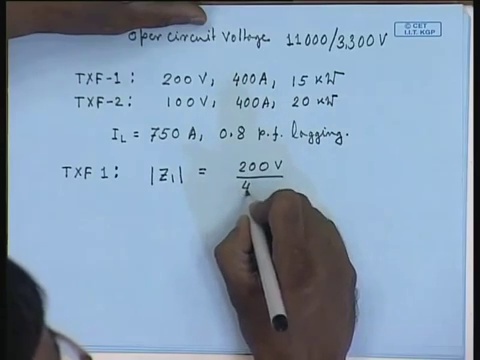 Open circuit voltage 11000/3,300 V
© CET
I.I.T. KGP
TXF-1: 200 V, 400A, 15 kW
TXF-2: 100 V, 400A, 20 kW
I_L = 750 A, 0.8 p.f. lagging.
TXF 1: |Z₁| = 200 V / 4